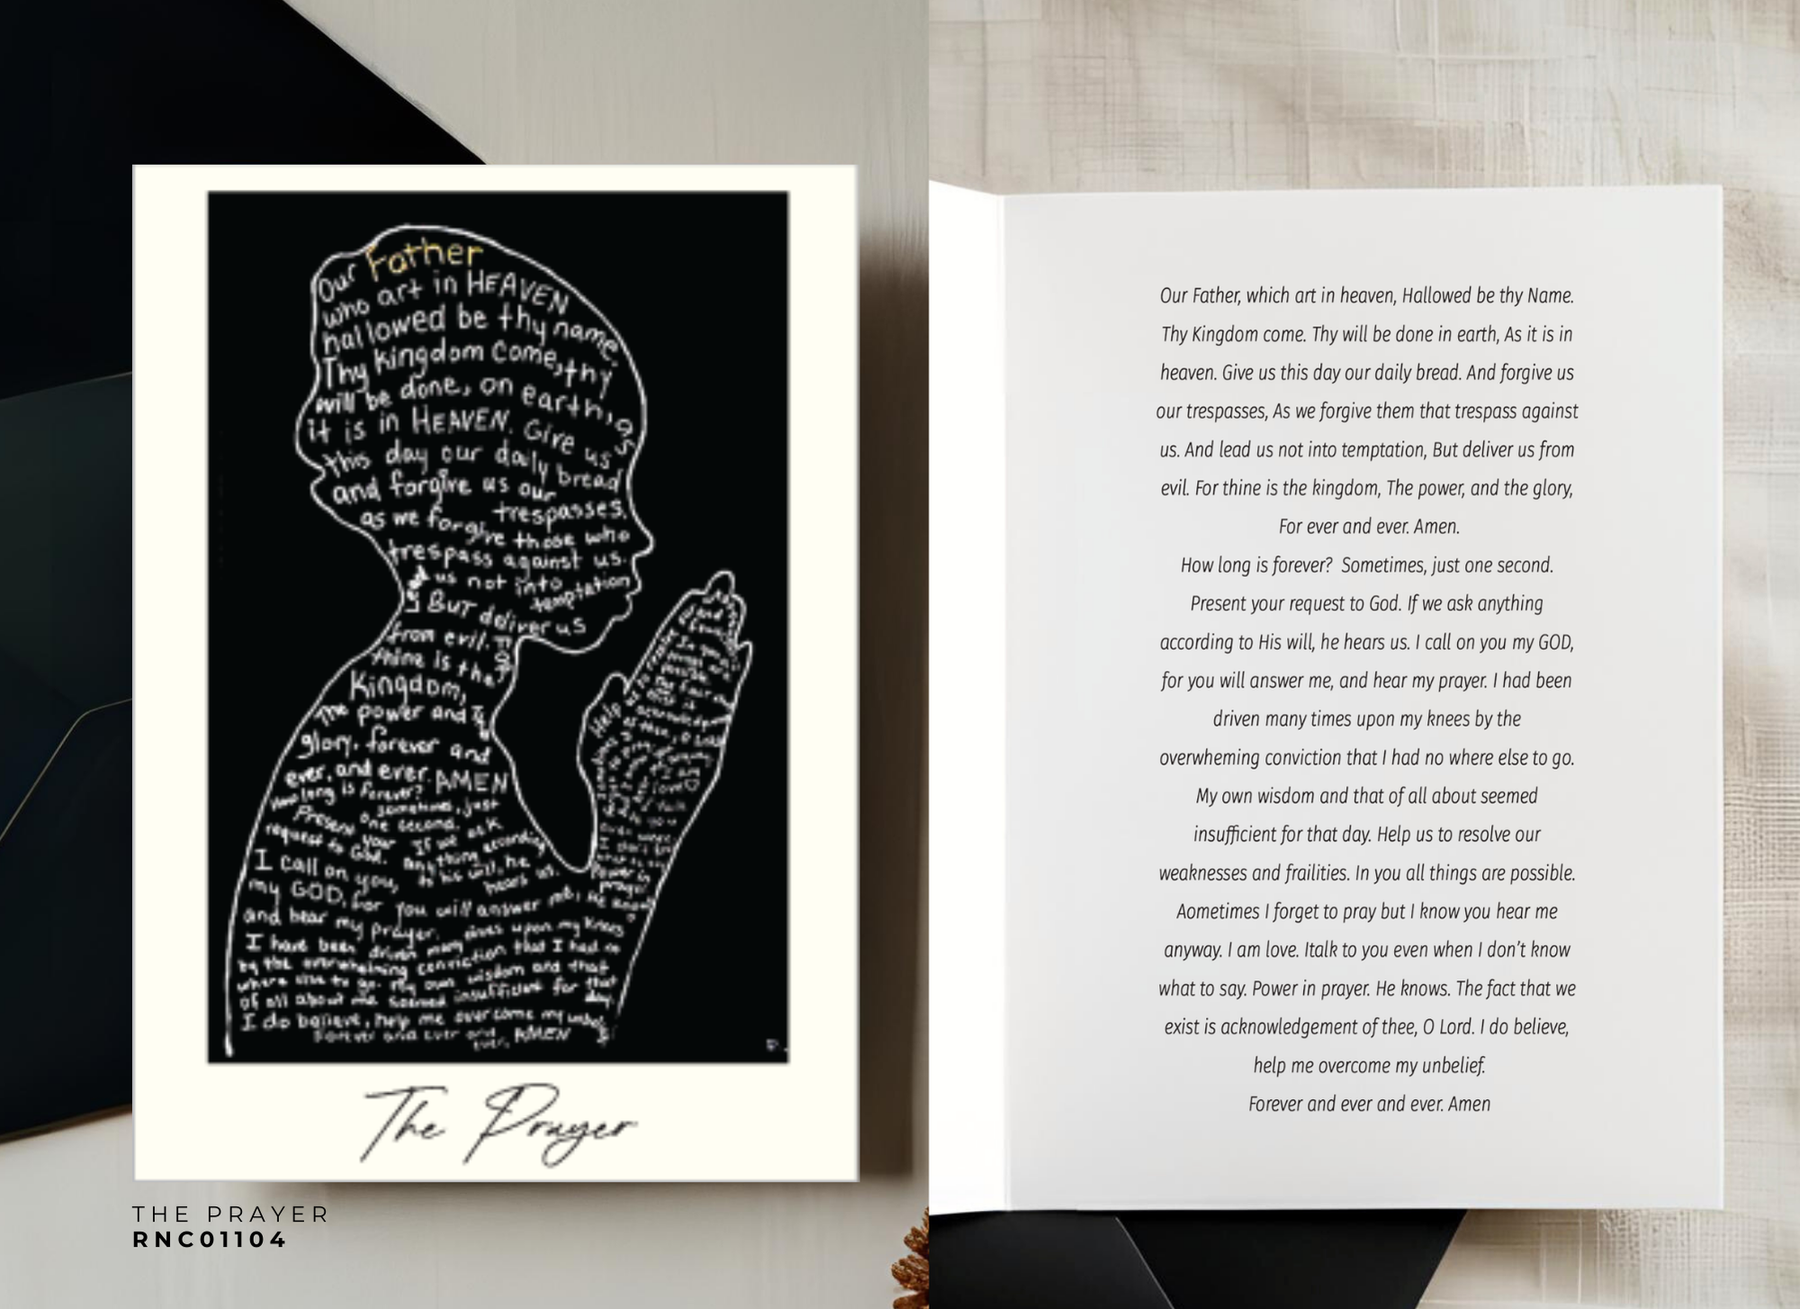 Our Father
who art in HEAVEN
hallowed be thy name.
Thy kingdom come, thy
will be done, on earth, as
it is in HEAVEN. Give us
this day our daily bread
and forgive us our
trespasses.
as we forgive those who
trespass against us.
us not into
temptation
But deliver us
from evil. For
thine is the
Kingdom,
The power and The
glory, forever and
ever, and ever. AMEN
How long is forever?
sometimes, just
one second.
Present your
request to God.
If we ask
anything according
to his will, he
hears us.
I call on you,
my GOD, for you will answer me,
and hear my prayer.
I have been driven many times upon my knees
by the overwhelming conviction that I had no
where else to go. My own wisdom and that
of all about me seemed insufficient for that
day.
I do believe, help me overcome my
Forever and ever and
ever, AMEN
Help
Power in
prayer
The Prayer
THE PRAYER
RNC01104
Our Father, which art in heaven, Hallowed be thy Name.
Thy Kingdom come. Thy will be done in earth, As it is in
heaven. Give us this day our daily bread. And forgive us
our trespasses, As we forgive them that trespass against
us. And lead us not into temptation, But deliver us from
evil. For thine is the kingdom, The power, and the glory,
For ever and ever. Amen.
How long is forever? Sometimes, just one second.
Present your request to God. If we ask anything
according to His will, he hears us. I call on you my GOD,
for you will answer me, and hear my prayer. I had been
driven many times upon my knees by the
overwheming conviction that I had no where else to go.
My own wisdom and that of all about seemed
insufficient for that day. Help us to resolve our
weaknesses and frailities. In you all things are possible.
Aometimes I forget to pray but I know you hear me
anyway. I am love. Italk to you even when I don't know
what to say. Power in prayer. He knows. The fact that we
exist is acknowledgement of thee, O Lord. I do believe,
help me overcome my unbelief.
Forever and ever and ever. Amen